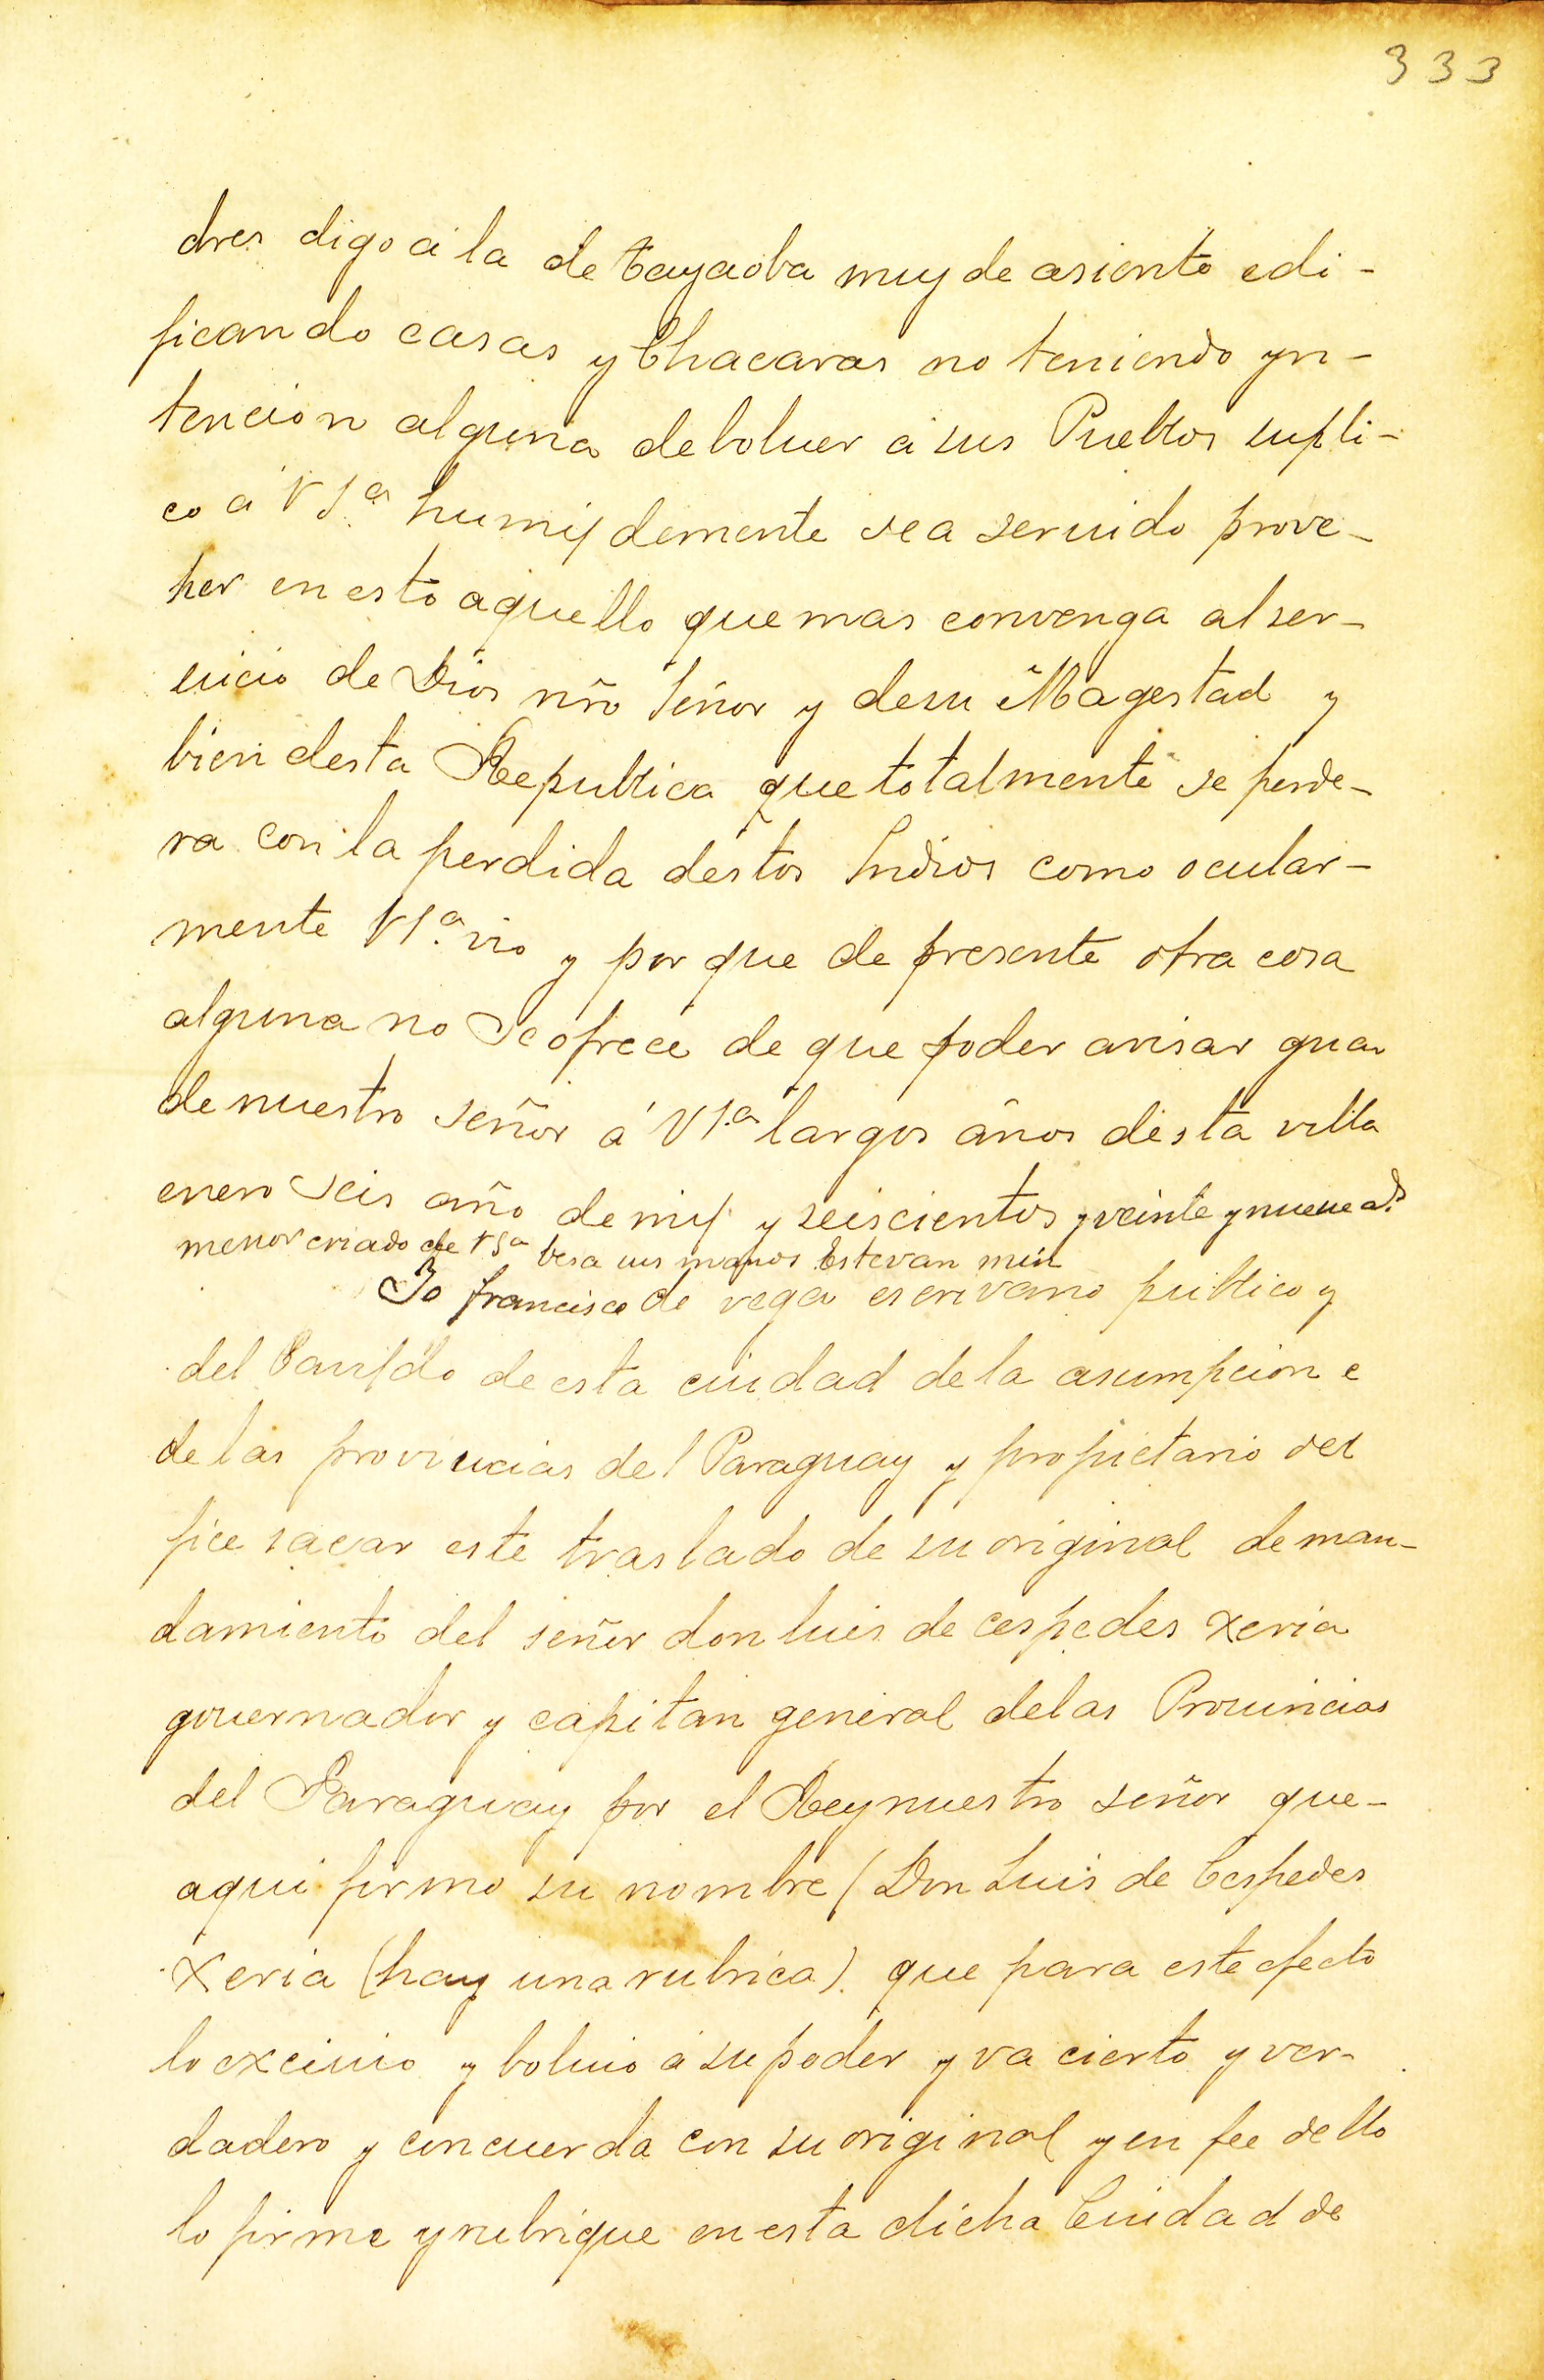 333
dres digo á la de tayaoba muy de asiento edi-
ficando casas y Chacaras no teniendo yn-
tencion alguna de boluer á sus Pueblos supli-
co á VSª humildemente sea seruido prove-
her en esto aquello que mas convenga al ser-
uicio de Dios nrõ Señor y de su Magestad y
bien desta Republica que totalmente se perde-
ra con la perdida destos Indios como ocular-
mente VSª vio y por que de presente otra cosa
alguna no se ofrece de que poder avisar guar
de nuestro señor á VSª largos años desta villa
enero seis año de mil y seiscientos y veinte y nueue as
menor criado de VSª besa sus manos Estevan
Io francisco de vega escrivano publico y
del Cauildo de esta ciudad de la asumpcion e
de las provincias del Paraguay y propietario del
fice sacar este traslado de su original de man-
damiento del señor don luis de cespedes xeria
governador y capitan general de las Prouincias
del Paraguay por el Rey nuestro señor que-
aqui firmo su nombre (Don Luis de Cespedes
Xeria (hay una rubrica). que para este efecto
lo y boluio á su poder y va cierto y ver-
dadero y concuerda con su original y en fee dello
lo firme y rubrique en esta dicha Ciudad de